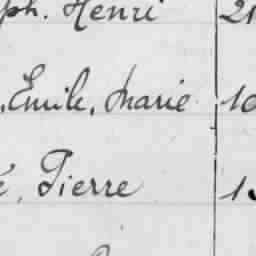 ph. Henri 21
, Emile, Marie 10
é, Pierre 1